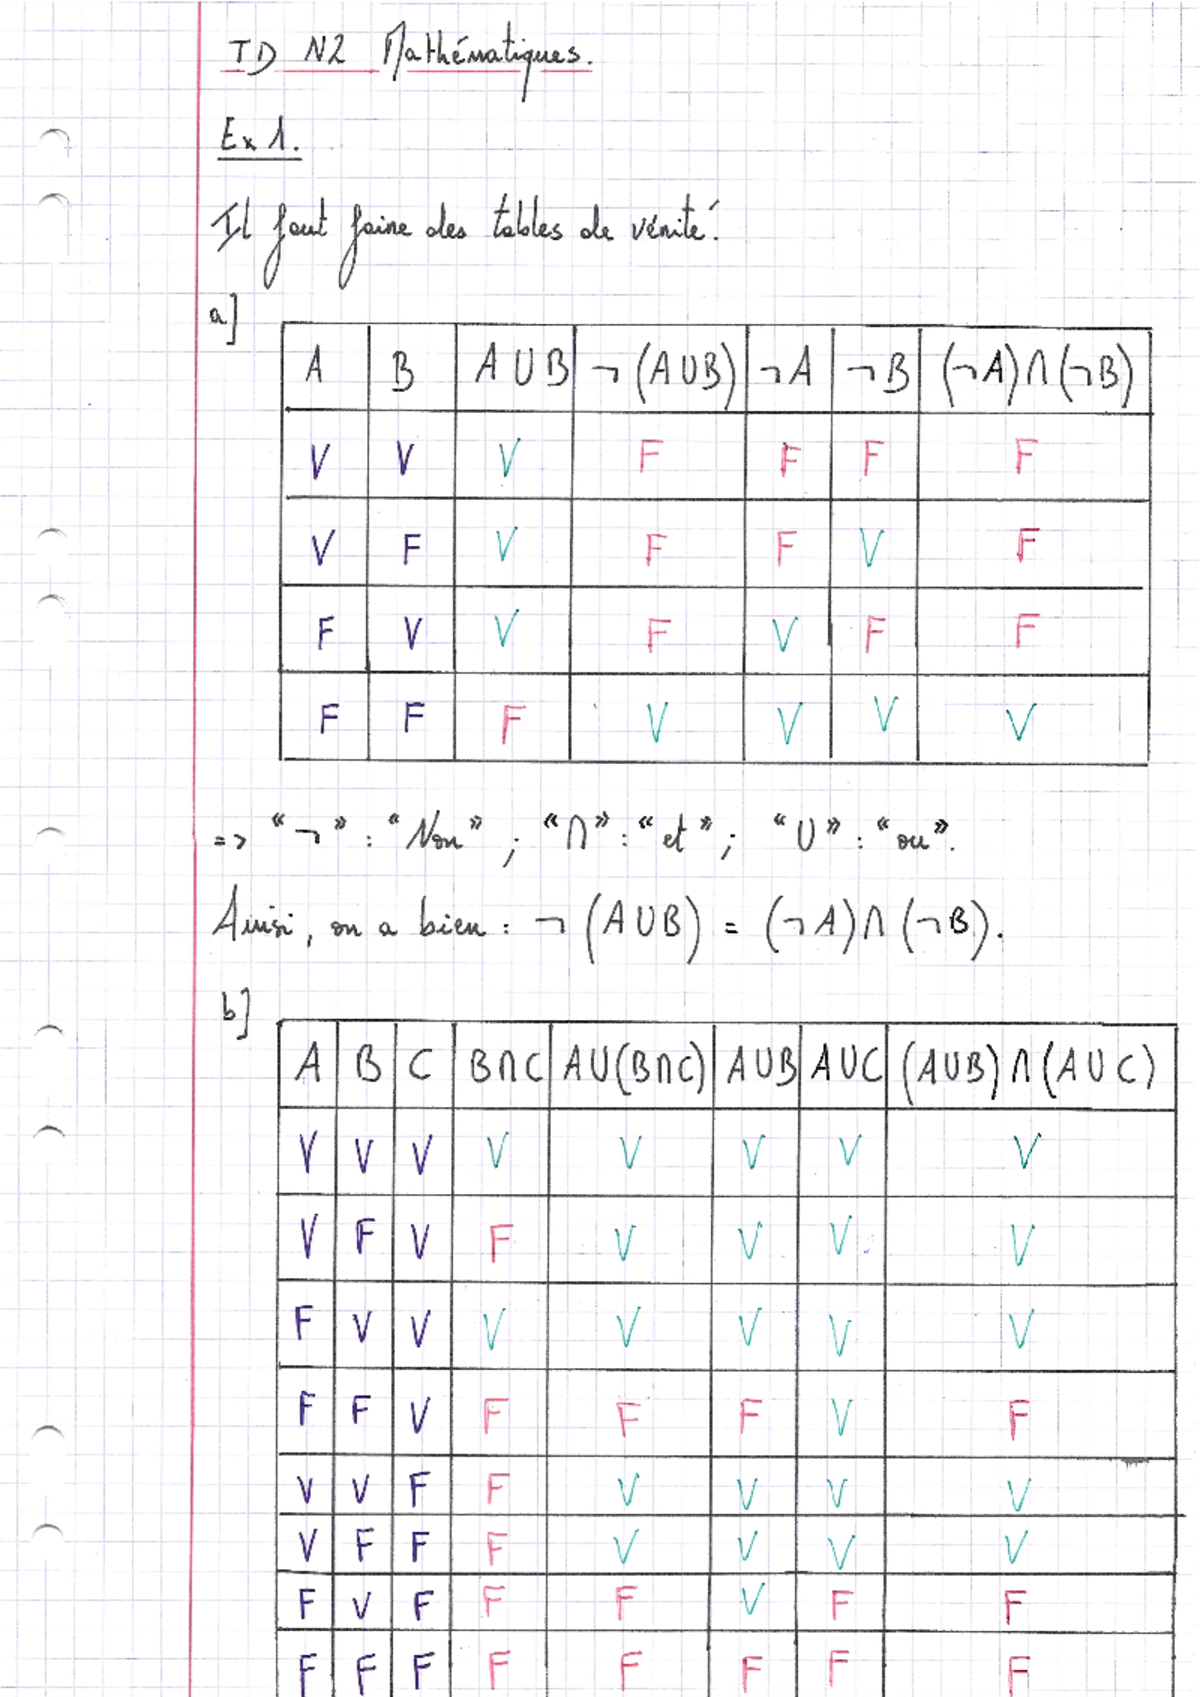 TD N2 Mathématiques.
Ex 1.
Il faut faire des tables de vérité.
a]
A B A∪B ¬(A∪B) ¬A ¬B (¬A)∩(¬B)
V V V F F F F
V F V F F V F
F V V F V F F
F F F V V V V
=> "¬" : "Non" ; "∩" : "et" ; "∪" : "ou".
Ainsi, on a bien : ¬(A∪B) = (¬A)∩(¬B).
b]
A B C B∩C A∪(B∩C) A∪B A∪C (A∪B)∩(A∪C)
V V V V V V V V
V F V F V V V V
F V V V V V V V
F F V F F F V F
V V F F V V V V
V F F F V V V V
F V F F F V F F
F F F F F F F F